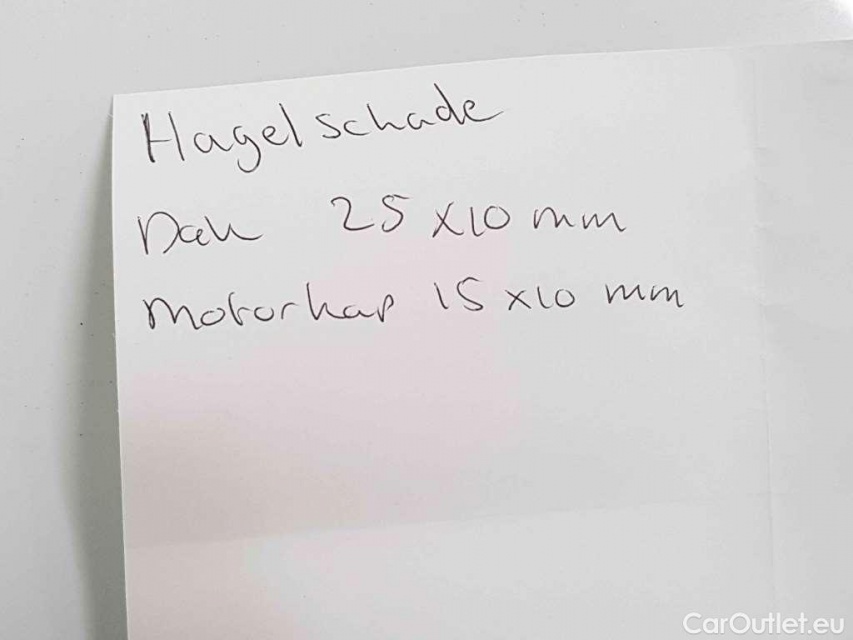 Hagelschade
Dak 25 x 10 mm
Motorkap 15 x 10 mm
CarOutlet.eu